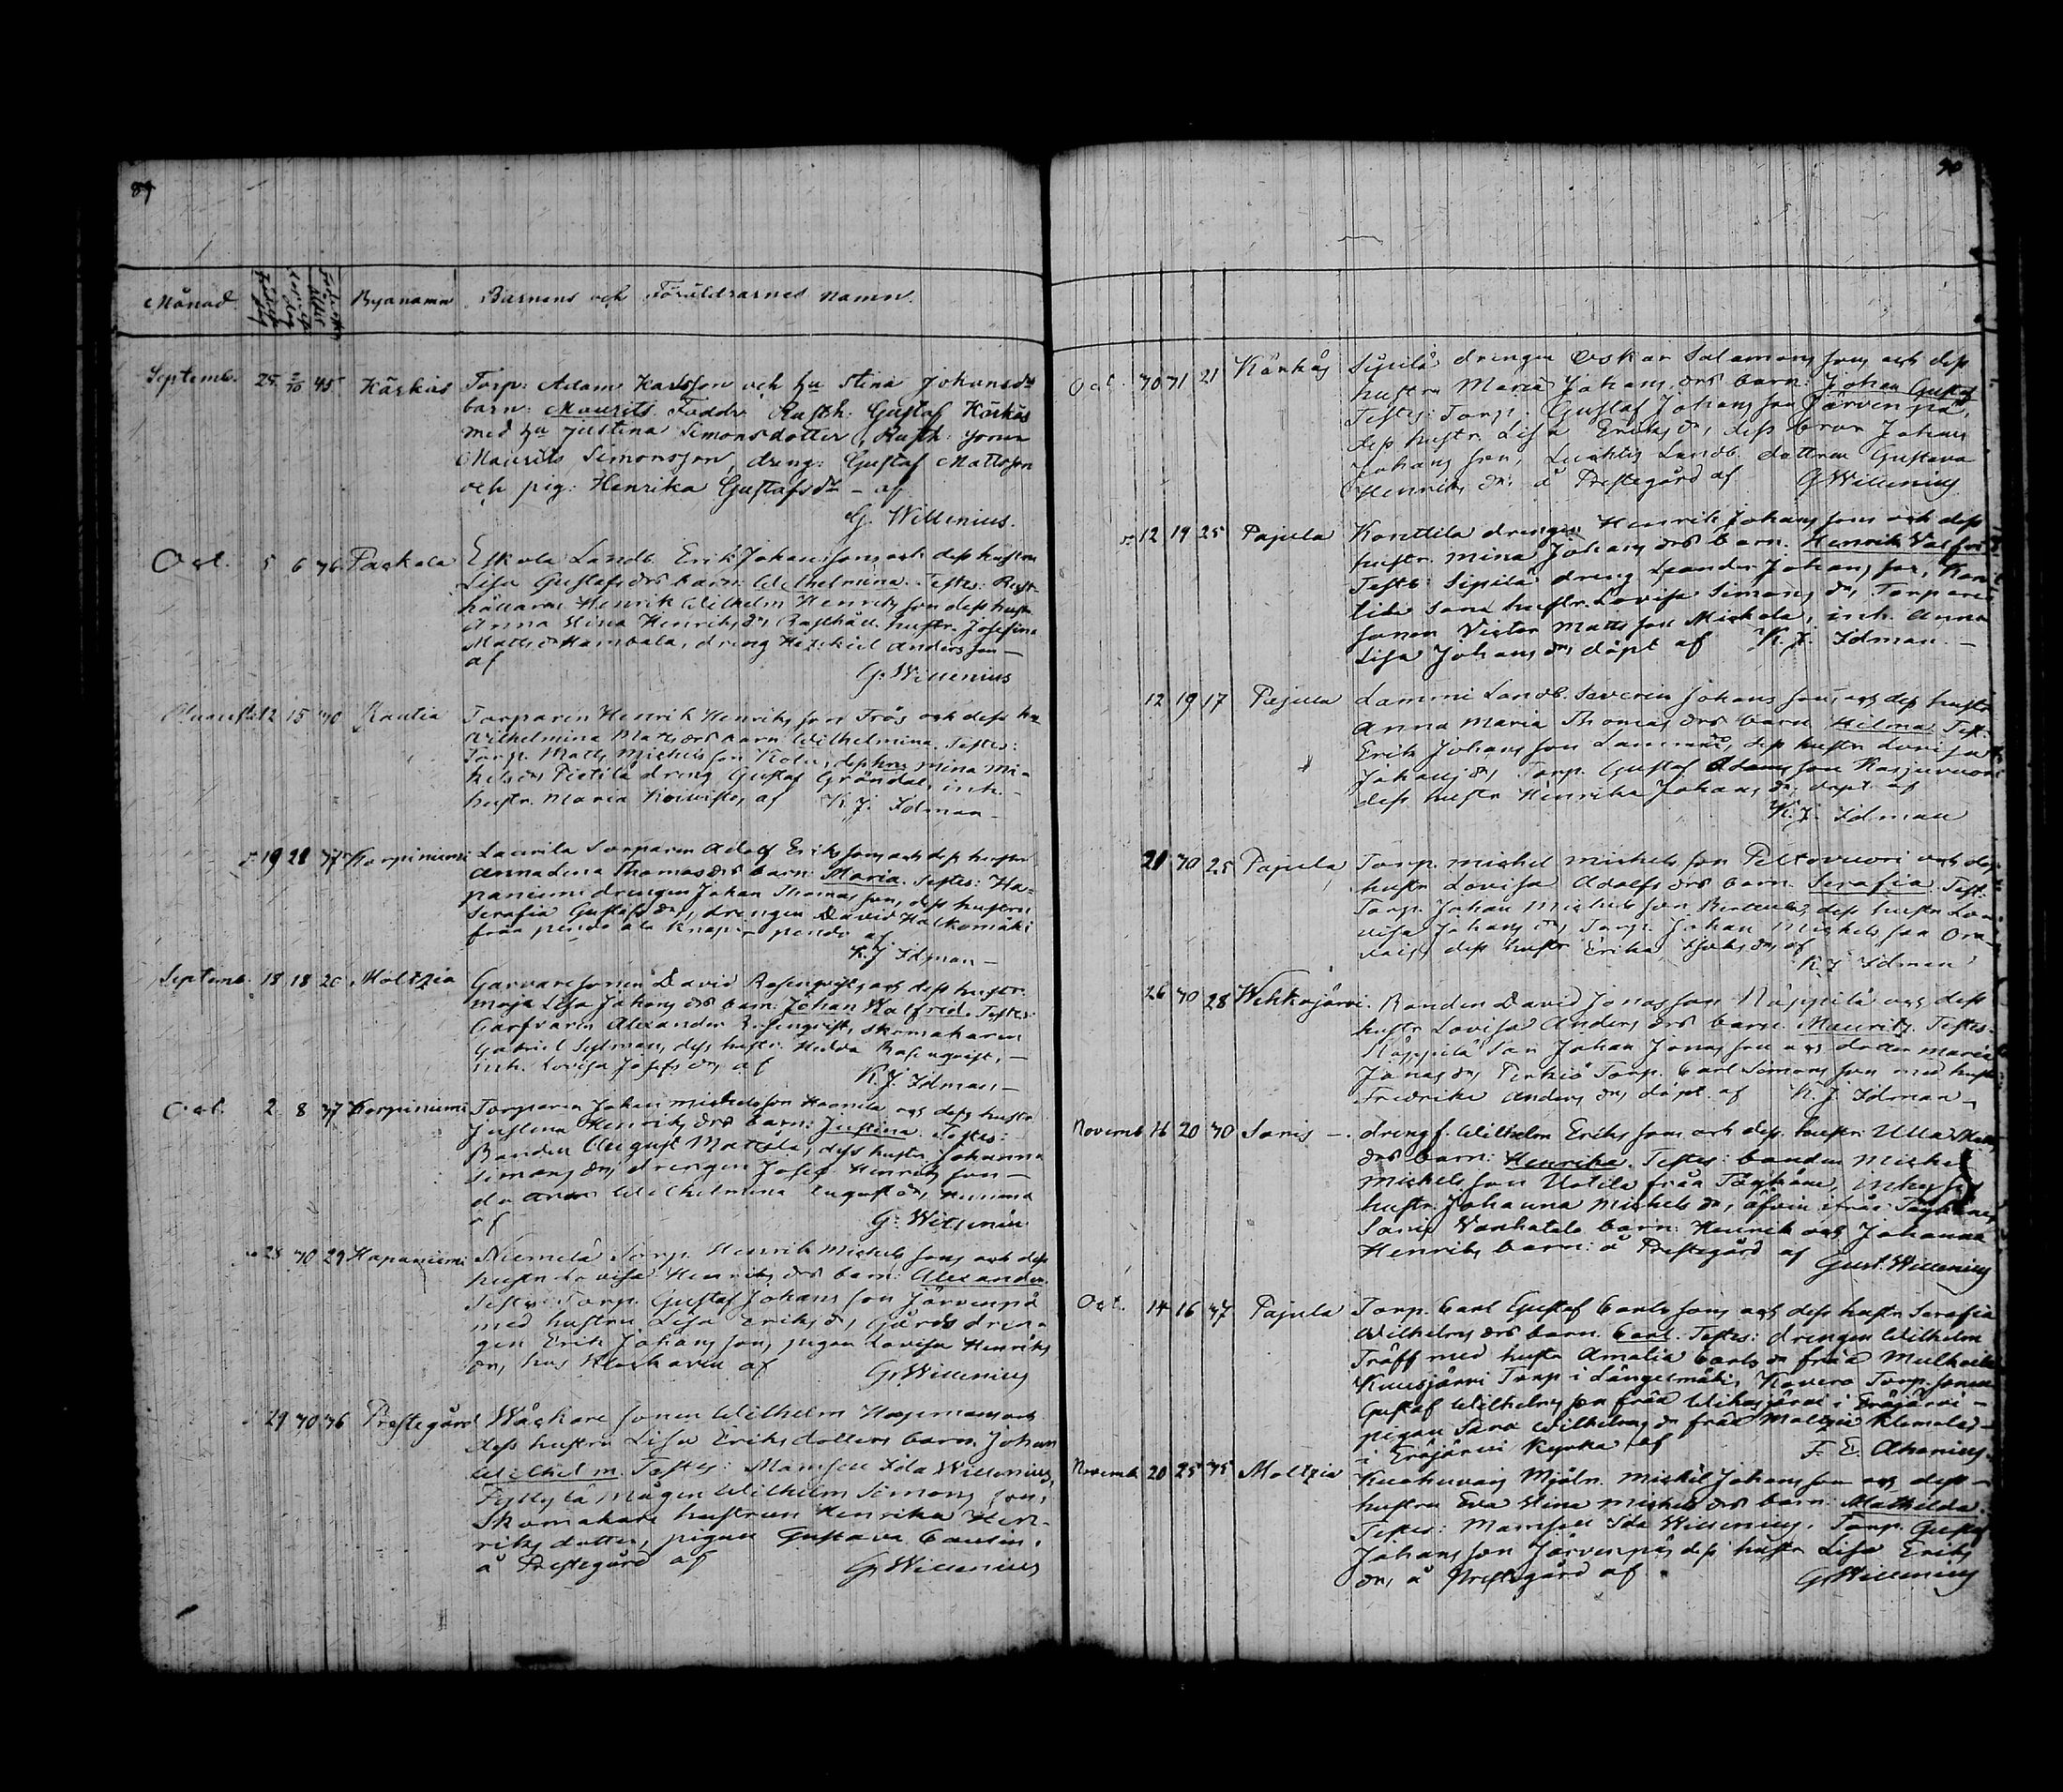 89
Månad Byanamn Barnens och Föräldrarnes namn.
Septemb. 25 2/10 45 Käskäs Torp: Adam Karlsson och hu Stina Johansdr
barn: Maurits. Faddr Rusth: Gustaf Käskäs
med hu Justina Simonsdotter, Rusth: sonen
Maurits Simonsson, dreng: Gustaf Mattsson
och pig: Henrika Gustafsdr – af
G. Willenius.
Oct. 5 6 36 Paekola Eskola Landb. Erik Johansson och dess hustru
Lisa Gustafsdrs barn: Wilhelmina. Testes: Rust-
hållaren Henrik Wilhelm Henriksson dess hustr.
Anna Stina Henriksdr, Rusthåll. hustr. Josefina
Mattsdr Hambala, dreng Hezekiel Andersson –
af
G. Willenius
12 15 30 Rautia Torparen Henrik Henriksson Frös och dess hu
Wilhelmina Mattsdrs barn Wilhelmina. Testes:
Torp. Matts Michelsson Kola, dess hu Mina Mi-
kelsdr, Pietilä dreng Gustaf Gröndal, inh.
hustr. Maria Koivisto, af K. J. Idman –
19 28 37 Korpiniemi Laurila Torparen Adolf Eriksson och dess hustru
Anna Lena Thomasdrs barn: Maria. Testes: Ha-
paniemi drengen Johan Thomasson, dess hustru
Serafia Gustafsdr, drengen David Halkomäki
från
K. J. Idman –
Septemb. 18 18 20 Moltzia Garvaresonen David Rosenqvists och dess hustr.
Maja Lisa Johansdrs barn: Johan Walfrid. Testes:
Garfvaren Alexander Rosenqvist, skomakaren
Gabriel Sylman, dess hustr. Hedda Rosenqvist, –
inh. Lovisa Josefsdr af K. J. Idman –
Oct. 2 8 37 Korpiniemi Torparen Johan Michelsson Haanila och dess hustru
Justina Henriksdrs barn: Justina. Testes:
Bonden August Mattila, dess hustr. Johanna
Simonsdr, drengen Josef Henriksson –
Wilhelmina Augustdr,
af G. Willenius
25 30 29 Hapaniemi Niemelä Torp. Henrik Michelsson och dess
hustru Lovisa Henriksdrs barn: Alexander.
Testes: Torp. Gustaf Johansson Järvenpä
med hustru Lisa Eriksdr, Gårdsdren-
gen Erik Johansson, pigan Lovisa Henriks
dr, hos Klockaren af G. Willenius
29 30 36 Prestegård Wåghare sonen Wilhelm Hagemans och
dess hustru Lisa Eriksdotters barn. Johan
Wilhelm. Testes: Mamsell Ida Willenius,
Pyttylä mågen Wilhelm Simonsson,
Skomakare hustrun Henrika Hen-
riksdotter, pigan Gustava Caulin.
å Prestegård af G. Willenius
90
Oct. 30 31 21 Känkäs Sipilä drengen Oskar Salomonsson och dess
hustru Maria Johansdrs barn: Johan Gustaf
Testes: Torp. Gustaf Johansson Järvenpää,
dess hustr. Lisa Eriksdr, dess bror Johan
Johansson, Landb. dottren Gustava
Henriksdr, å Prestegård af G. Willenius
12 19 25 Pajula Konttila drengen Henrik Johansson och dess
hustr. Mina Johansdrs barn. Henrik Valfrid
Testes: Sipilä dreng Leander Johansson, Kont
tila hustr. Lovisa Simonsdr, Torpare
sonen Victor Mattsson Mickola, inh. Anna
Lisa Johansdr, döpt af K. J. Idman. –
12 19 17 Pajula Lammi Landb. Severin Johansson och dess hustr.
Anna Maria Thomasdrs barn Hilma. Test.
Erik Johansson Lammi, dess hustr. Lovisa
Johansdr, Torp. Gustaf Adamsson Karjuvuori
dess hustr Henrika Johansdr, döpt af
K. J. Idman
21 30 25 Pajula Torp. Michel Michelsson Peltovuori och dess
hustr Lovisa Adolfsdrs barn. Serafia. Test.
Torp. Johan Michelsson dess hustr. Lo-
visa Johansdr, Torp. Johan Michelsson
dess hustr Erika af
K. J. Idman
26 30 28 Wehkajärvi Bonden David Jonasson Näppilä och dess
hustr Lovisa Andersdrs barn. Maurits. Testes.
Näppilä Son Johan Jonasson och dotter Maria
Jonasdr, Perkiö Torp. Carl Simonsson med hustr
Fredrika Andersdr, döpt. af K. J. Idman –
Novemb 16 20 30 Saris – drengf. Wilhelm Eriksson och dess hustr. Ulla
drs barn: Henrika. Testes: bonden Michel
Michelsson Uotila från
hustr. Johanna Michelsdr,
Saris Vanhatalo barn: Henrik och Johanna
Henriks barn: å Prestegård af Gust. Willenius
Oct. 14 16 37 Pajula Torp. Carl Gustaf Carlsson och dess hustr Serafia
Wilhelmsdrs barn. Carl. Testes: drengen Wilhelm
Träff med hustr Amalia Carlsdr från
Kuusjärvi Torp i Längelmäki, Kovero Torp. sonen
Gustaf Wilhelmsson från Wihasjärvi i Eräjärvi –
pigan Sara Wilhelmsdr från Moltzia Klemola –
i Eräjärvi Kyrka af F. E. Ahonius
Novemb. 20 25 35 Moltzia Mjöln. Mickel Johansson och dess –
hustru Eva Stina Michelsdrs barn. Mathilda
Testes: Mamsell Ida Willenius. Torp. Gustaf
Johansson Järvenpää, dess hustr Lisa Eriks
dr, å Prestegård af G. Willenius